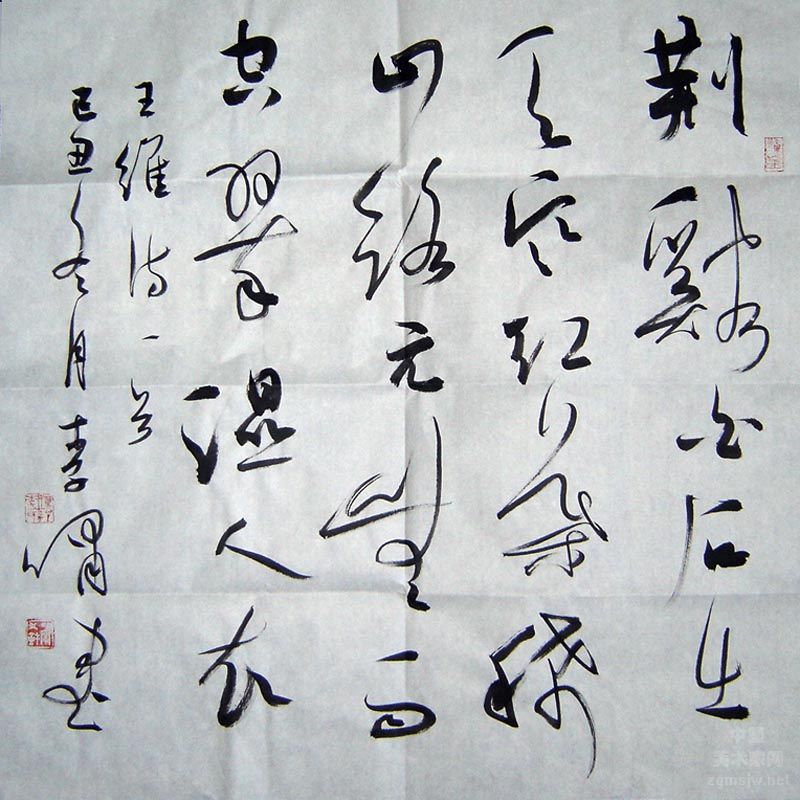 荆谿白石出
天寒红葉稀
山路元無雨
空翠湿人衣
王維诗一首
己丑冬月李书
中國
美术家网
zgmsjw.net